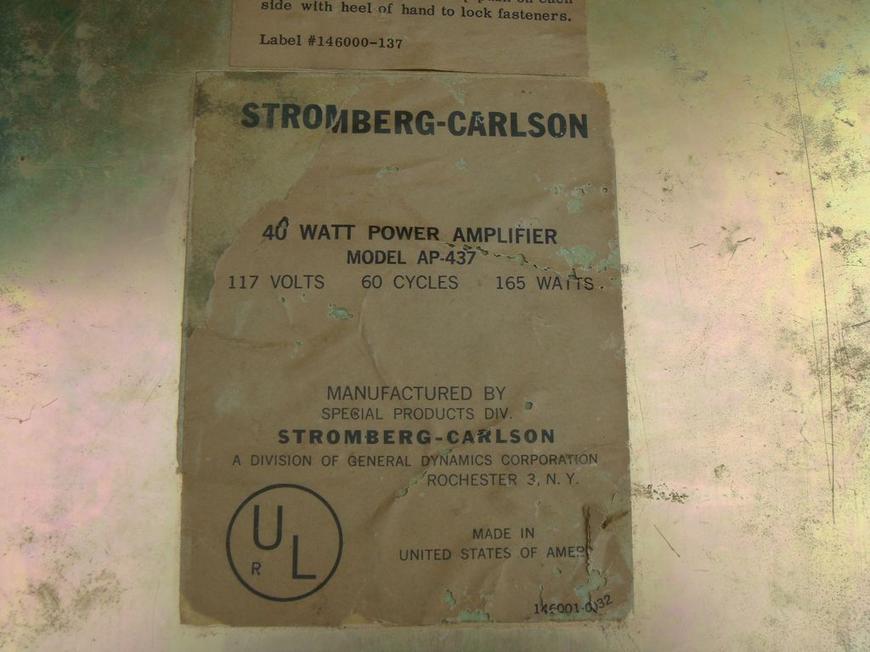 side with heel of hand to lock fasteners.
Label #146000-137
STROMBERG-CARLSON
40 WATT POWER AMPLIFIER
MODEL AP-437
117 VOLTS 60 CYCLES 165 WATTS
MANUFACTURED BY
SPECIAL PRODUCTS DIV.
STROMBERG-CARLSON
A DIVISION OF GENERAL DYNAMICS CORPORATION
ROCHESTER 3, N. Y.
UL
R
MADE IN
UNITED STATES OF